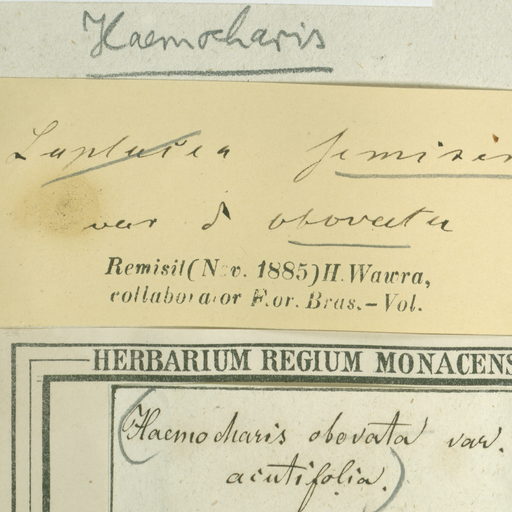 Haemocharis
Laplacea semiser
var δ obovata
Remisit (Nov. 1885) H. Wawra,
collaborator F.or. Bras. - Vol.
HERBARIUM REGIUM MONACENS
(Haemocharis obovata var.
acutifolia.)